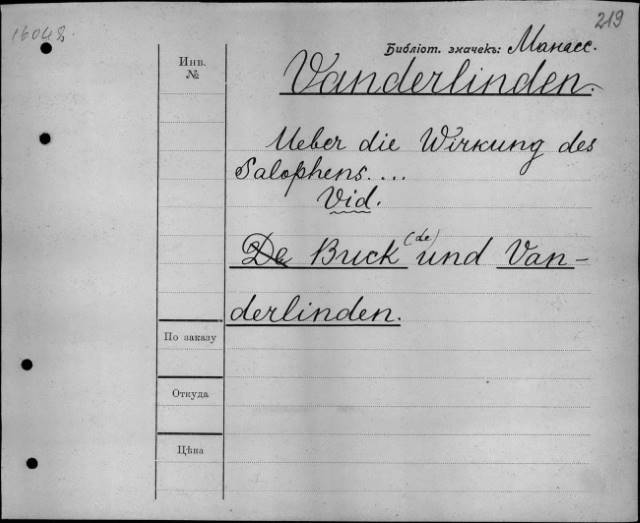 16048.
219
Библіот. значекъ: Манасс.
Инв.
№
Vanderlinden.
Ueber die Wirkung des
Salophens....
Vid.
De Buck (de) und Van-
derlinden.
По заказу
Откуда
Цѣна